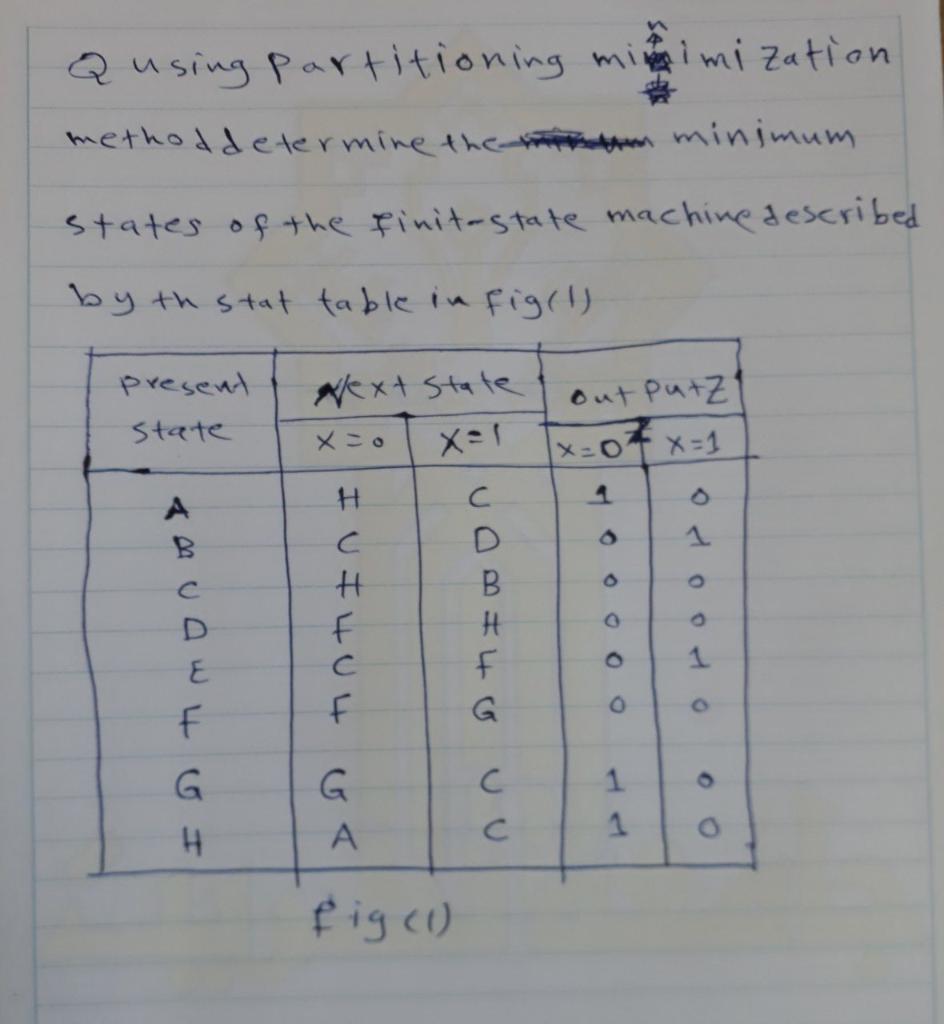 Q using partitioning minimization
method determine the minimum
states of the finit-state machine described
by th stat table in fig(1)
present Next state output Z
state X=0 X=1 X=0 X=1
A H C 1 0
B C D 0 1
C H B 0 0
D F H 0 0
E C F 0 1
F F G 0 0
G G C 1 0
H A C 1 0
fig(1)